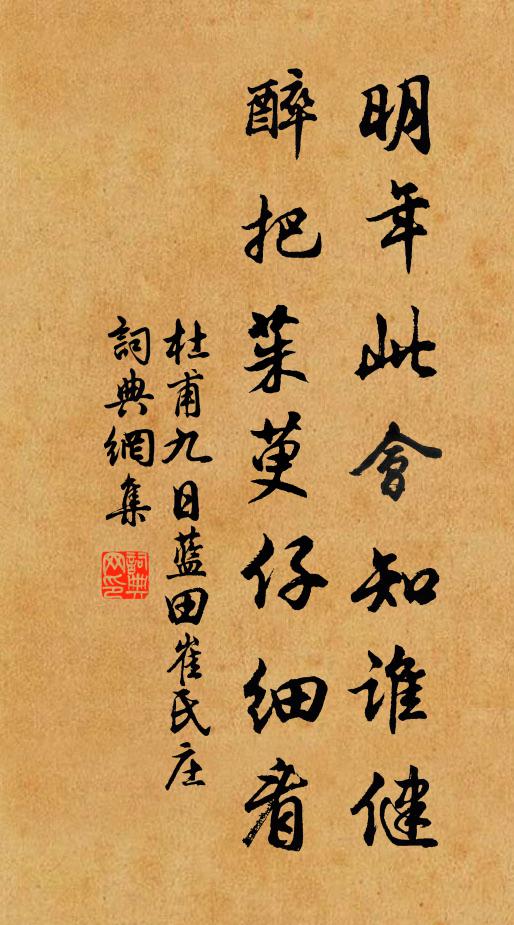 明年此會知誰健
醉把茱萸仔細看
杜甫九日藍田崔氏庄
詞典網集
詞典網印